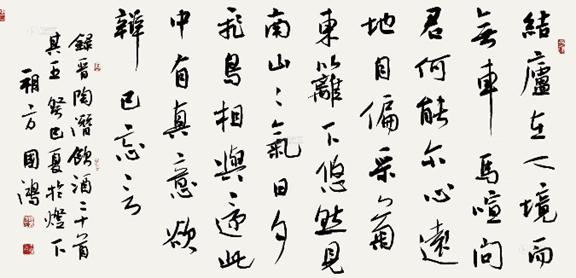 結廬在人境而
無車馬喧問
君何能尔心遠
地自偏采菊
東籬下悠然見
南山〻氣日夕
飛鳥相與還此
中有真意欲
辯已忘言
錄晉陶潛飲酒二十首
其五癸巳夏於燈下
方國鴻